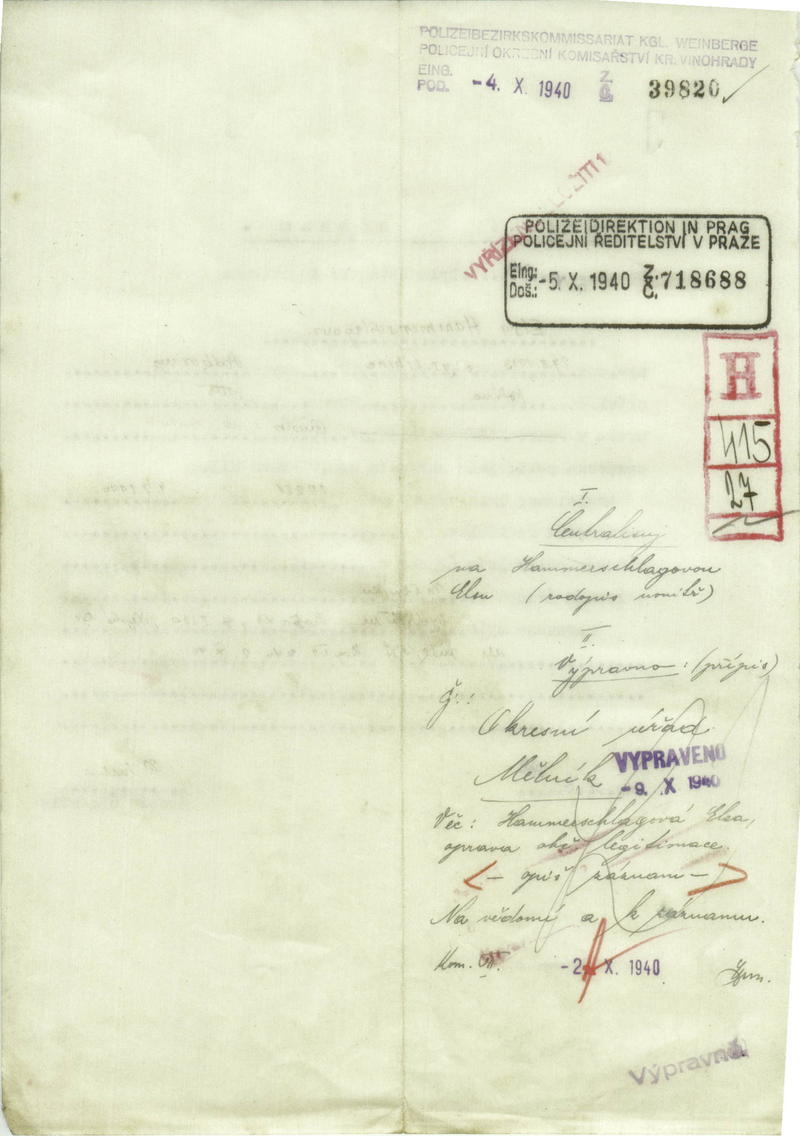 POLIZEIBEZIRKSKOMMISSARIAT KGL. WEINBERGE
POLICEJNÍ OKRESNÍ KOMISAŘSTVÍ KR. VINOHRADY
EING.
POD. -4. X. 1940 Z. Č. 39820
POLIZEIDIREKTION IN PRAG
POLICEJNÍ ŘEDITELSTVÍ V PRAZE
Eing.:
Doš.: -5. X. 1940 Z. Č. 718688
H
415
27
I.
na Hammerschlagovou
Elsu (rodopis uvnitř)
II.
Výpravno: (přípis)
Okresní úřad
Mělník
VYPRAVENO
-9. X 1940
Věc: Hammerschlagová Elsa,
oprava obč. legitimace.
— opiš záznam —
Na vědomí a k záznamu.
Kom.
-2. X. 1940
Výpravna